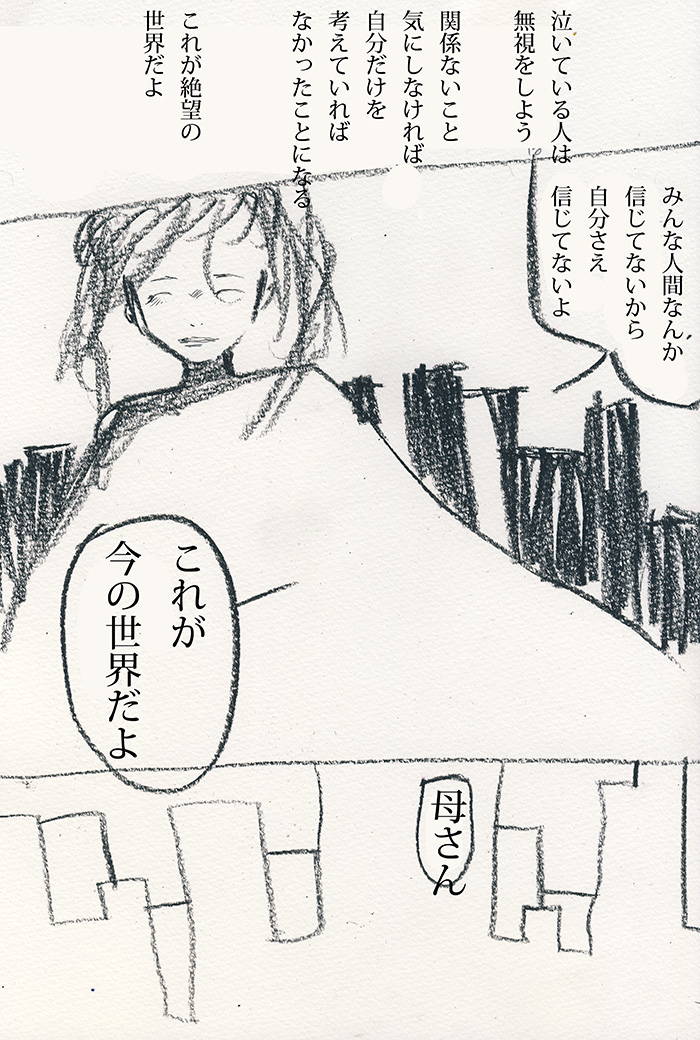 泣いている人は
無視をしよう
関係ないこと
気にしなければ
自分だけを
考えていれば
なかったことになる
これが絶望の
世界だよ
みんな人間なんか
信じてないから
自分さえ
信じてないよ
これが
今の世界だよ
母さん